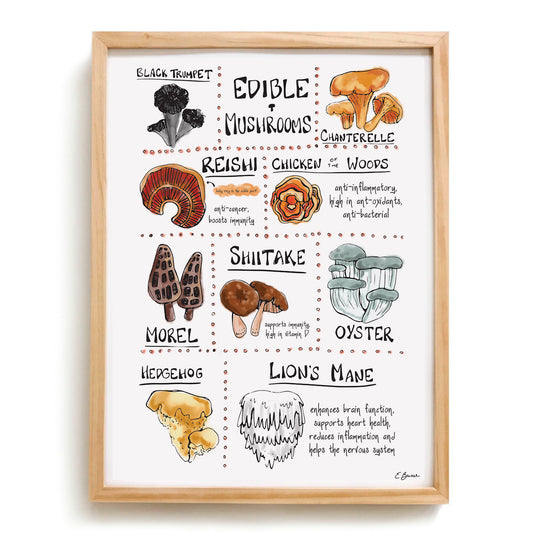 BLACK TRUMPET
EDIBLE
+
MUSHROOMS
CHANTERELLE
REISHI
anti-cancer,
boosts immunity
CHICKEN OF THE WOODS
anti-inflammatory,
high in ant-oxidants,
anti-bacterial
MOREL
SHIITAKE
supports immunity,
high in vitamin D
OYSTER
HEDGEHOG
LION'S MANE
enhances brain function,
supports heart health,
reduces inflammation and
helps the nervous system